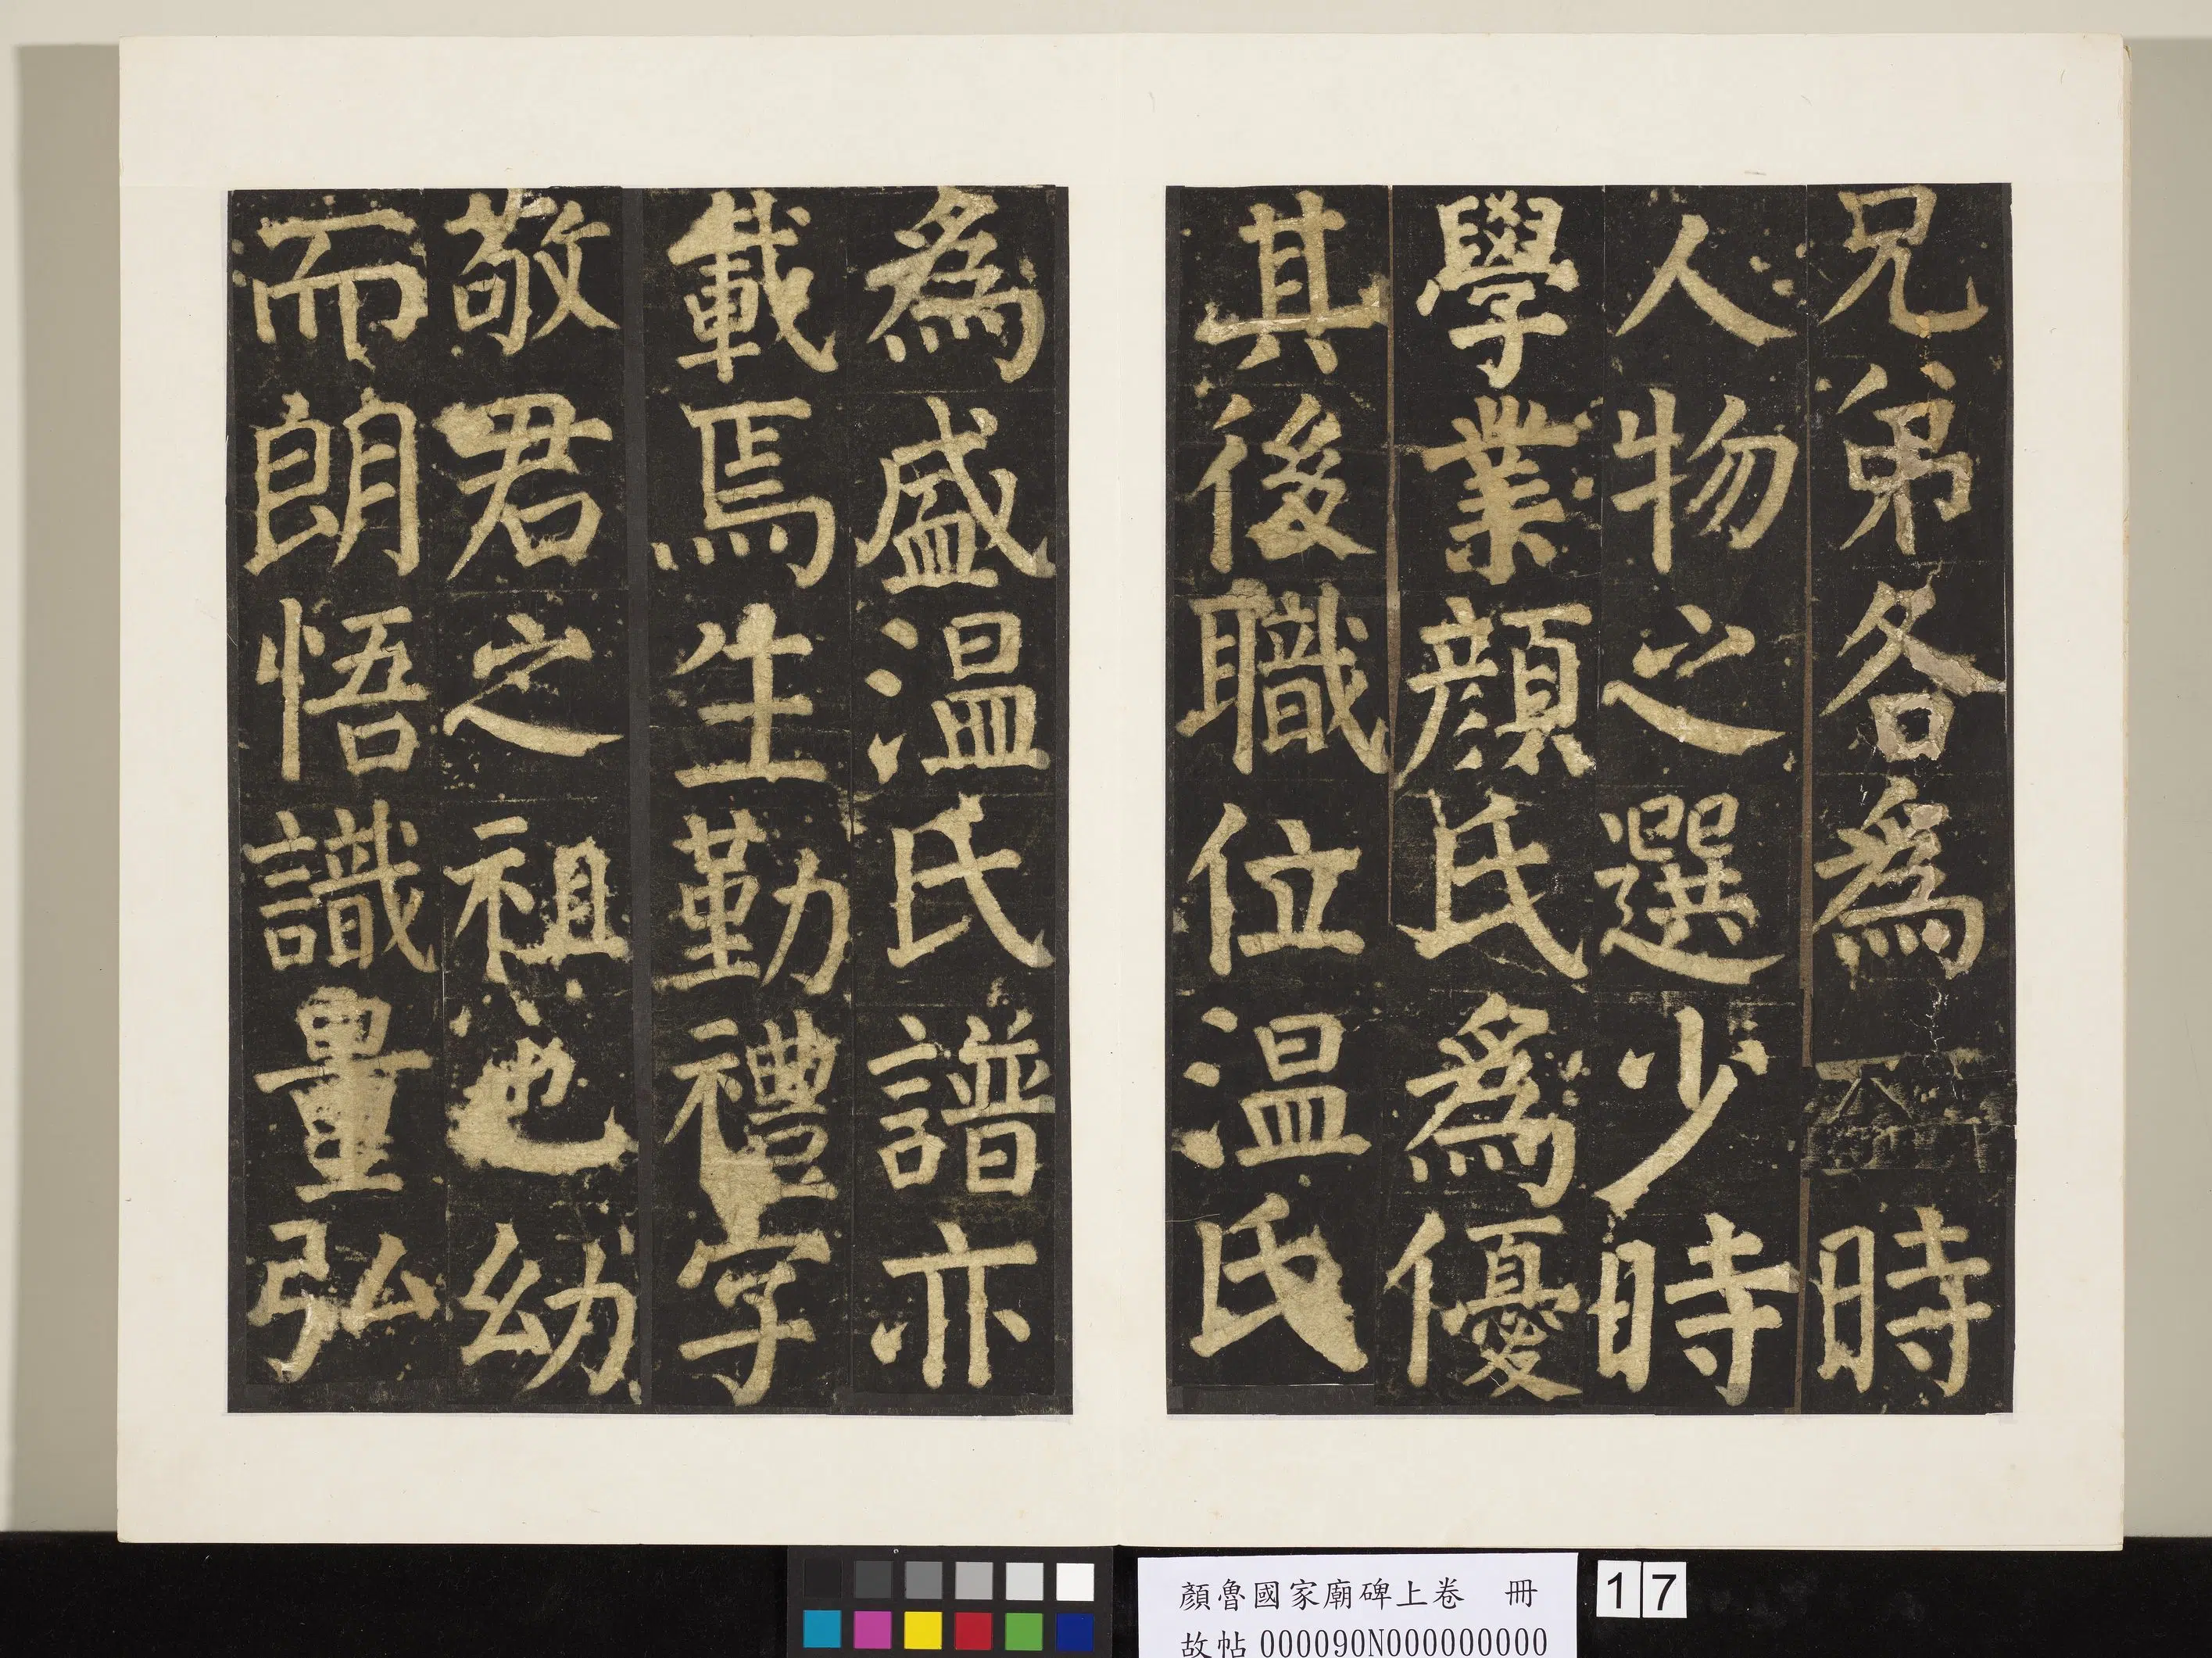 兄弟各為時
人物之選少時
學業顏氏為優
其後職位温氏
為盛温氏譜亦
載焉生勤禮字
敬君之祖也幼
而朗悟識量弘
顏魯國家廟碑上卷 冊
故帖000090N000000000
17